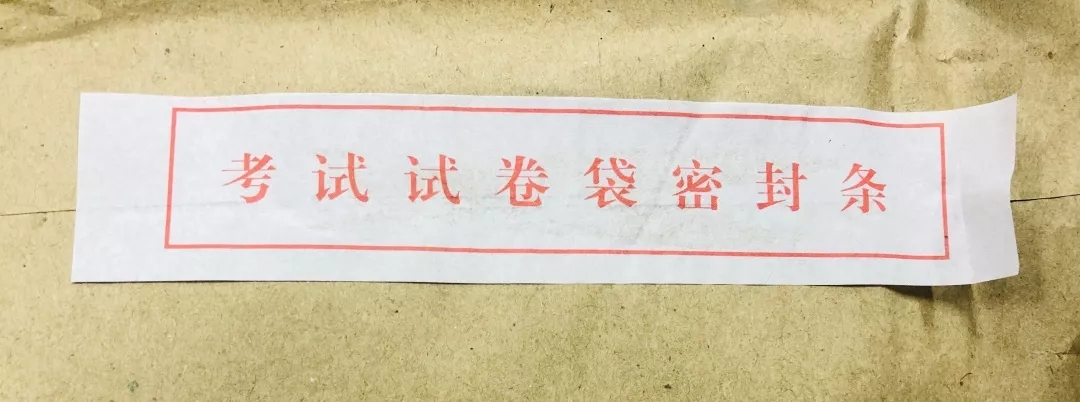 考试试卷袋密封条